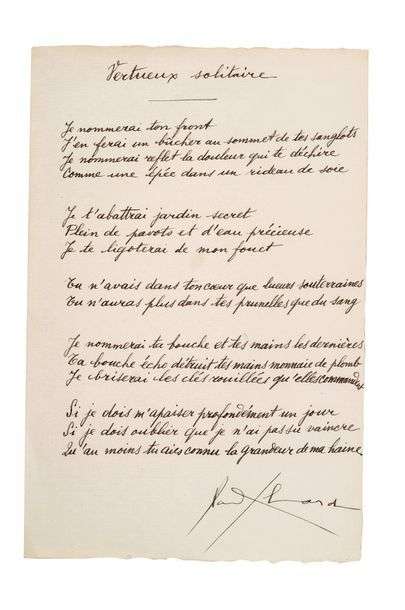 Vertueux solitaire
Je nommerai ton front
J'en ferai un bûcher au sommet de tes sanglots
Je nommerai reflet la douleur qui te déchire
Comme une épée dans un rideau de soie
Je t'abattrai jardin secret
Plein de pavots et d'eau précieuse
Je te ligoterai de mon fouet
Tu n'avais dans ton cœur que lueurs souterraines
Tu n'auras plus dans tes prunelles que du sang
Je nommerai ta bouche et tes mains les dernières
Ta bouche écho détruit tes mains monnaie de plomb
Je briserai les clés rouillées qu'elles commandent
Si je dois m'apaiser profondément un jour
Si je dois oublier que je n'ai pas su vaincre
Qu'au moins tu aies connu la grandeur de ma haine
Paul Eluard